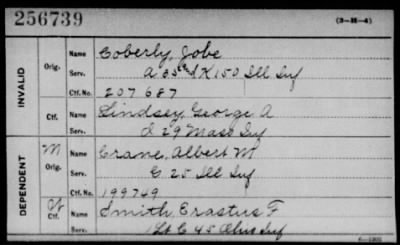 256739 (3-M-4)
INVALID
Orig. Name Coberly, Jobe
Serv. A 83 and K 150 Ill Inf
Ctf. No. 207687
Ctf. Name Lindsey, George A
Serv. I 29 Mass Inf
DEPENDENT
M Orig. Name Crane, Albert M
Serv. G 25 Ill Inf
Ctf. No. 199749
Ctf. Name Smith, Erastus F
Serv. 1 Lt C 45 Ohio Inf